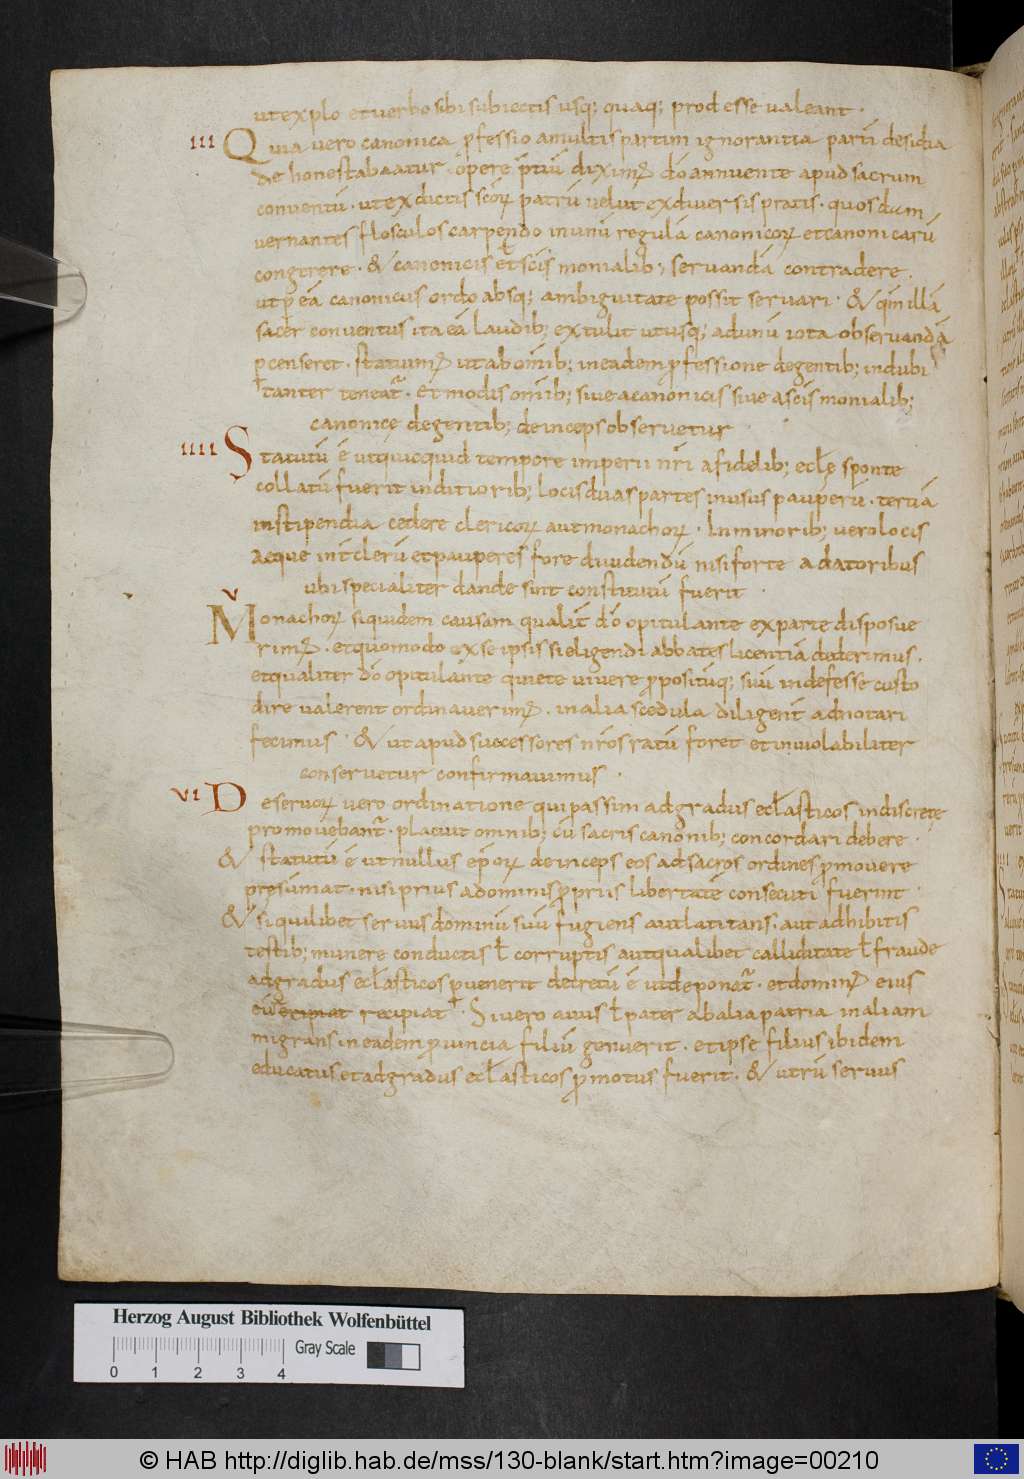 ut explo et verbo sibi subiectis usq; quaq; prodesse valeant.
III Quia vero canonica pfessio a multis partim ignorantia partī desidia
dehonestabatur. opere p̄tiū duximꝰ dō annuente apud sacrum
conventū. ut ex dictis scōrū patrū velut ex diversis pratis. quosdam
vernantes flosculos carpendo in unū regulā canonicoꝝ et canonicarū
congerere. & canonicis ł et scīs monialib; servandā contradere.
ut p eā canonicus ordo absq; ambiguitate possit servari. & qm̄ illā
sacer conventus ita eā laudib; extulit ut usq; ad unū iota observandā
pcenseret. statuimꝰ ut ab omīb; in eadem pfessione degentib; indubi
tanter teneat̄. et modis omīb; sive a canonicis sive a scīs monialib;
canonicę degentib; deinceps observetur
IIII Statutū ē ut quicquid tempore imperii nr̄i a fidelib; eclę sponte
collatū fuerit in ditiorib; locis duas partes in usus pauperū. tertiā
in stipendia cedere clericoꝝ aut monachoꝝ. In minorib; vero locis
aeque int clerū et pauperes fore dividendū nisi forte a datoribus
ubi specialiter dande sint constitutū fuerit.
V Monachoꝝ siquidem causam qualit̄ dō opitulante ex parte disposue
rimꝰ. et quomodo ex se ipsis si eligendi abbates licentiā dederimus.
et qualiter dō opitulante quiete vivere propositūq; suū indefesse custo
dire valerent ordinaverimꝰ. in alia scedula diligent̄ adnotari
fecimus. & ut apud successores nr̄os ratū foret et inviolabiliter
conservetur confirmavimus.
VI De servoꝝ vero ordinatione qui passim ad gradus eclasticos indiscrete
promovebant̄. placuit omnib; cū sacris canonib; concordari debere.
& statutū ē ut nullus epoꝝ deinceps eos ad sacros ordines pmovere
presūmat. nisi prius a dominis propriis libertatē consecuti fuerint.
& si quilibet servus dominū suū fugiens aut latitans. aut adhibitis
testib; munere conductis ł corruptis aut qualibet calliditate ł fraude
ad gradus eclasticos pvenerit decretū ē ut deponat̄. et dominꝰ eius
eū recipiat. Si vero avus ł pater ab alia patria in aliam
migrans in eadem pvincia filiū genuerit. et ipse filius ibidem
educatus et ad gradus eclasticos pmotus fuerit. & utrū servus
Herzog August Bibliothek Wolfenbüttel
Gray Scale
0 1 2 3 4
© HAB http://diglib.hab.de/mss/130-blank/start.htm?image=00210